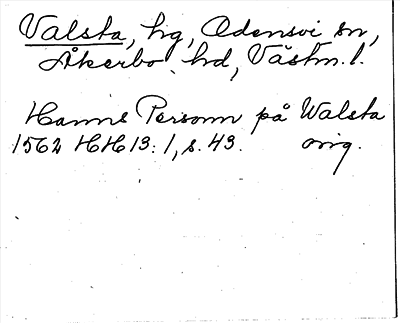 Valsta, hg, Odensvi sn,
Åkerbo hd, Västm. l.
Hanns Personn på Walsta
1562 HH 13:1, s. 43. orig.